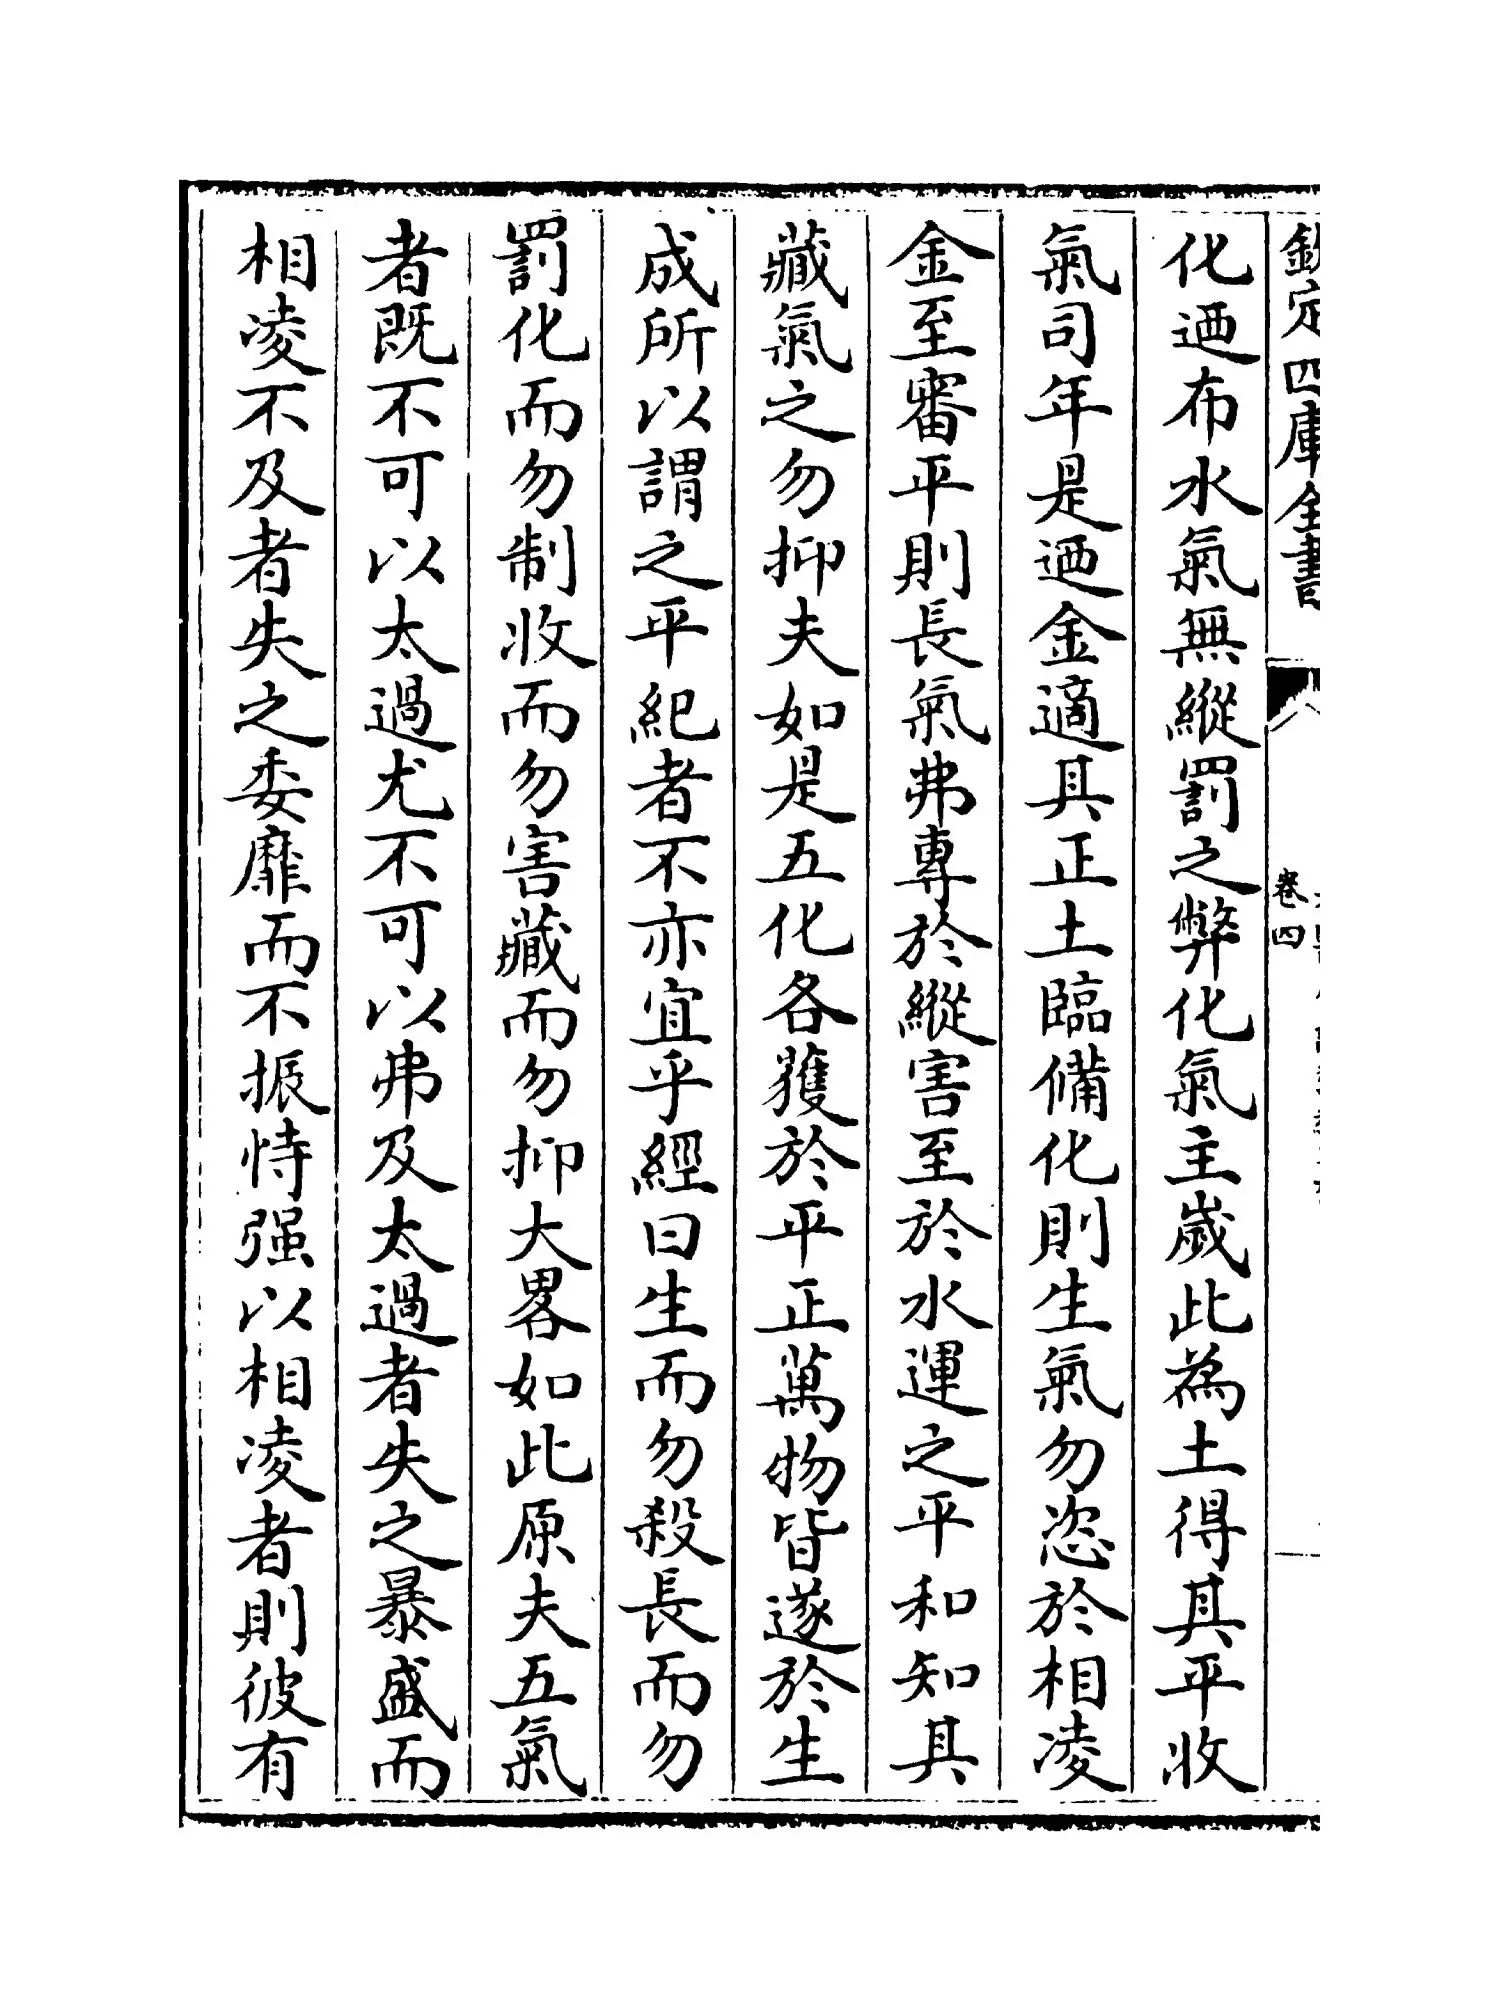 欽定四庫全書
卷四
化迺布水氣無縱罰之弊化氣主嵗此為土得其平收
氣司年是迺金適其正土臨備化則生氣勿恣於相凌
金至審平則長氣弗專於縱害至於水運之平和知其
藏氣之勿抑夫如是五化各獲於平正萬物皆遂於生
成所以謂之平紀者不亦宜乎經曰生而勿殺長而勿
罰化而勿制收而勿害藏而勿抑大畧如此原夫五氣
者既不可以太過尤不可以弗及太過者失之暴盛而
相凌不及者失之委靡而不振恃强以相凌者則彼有